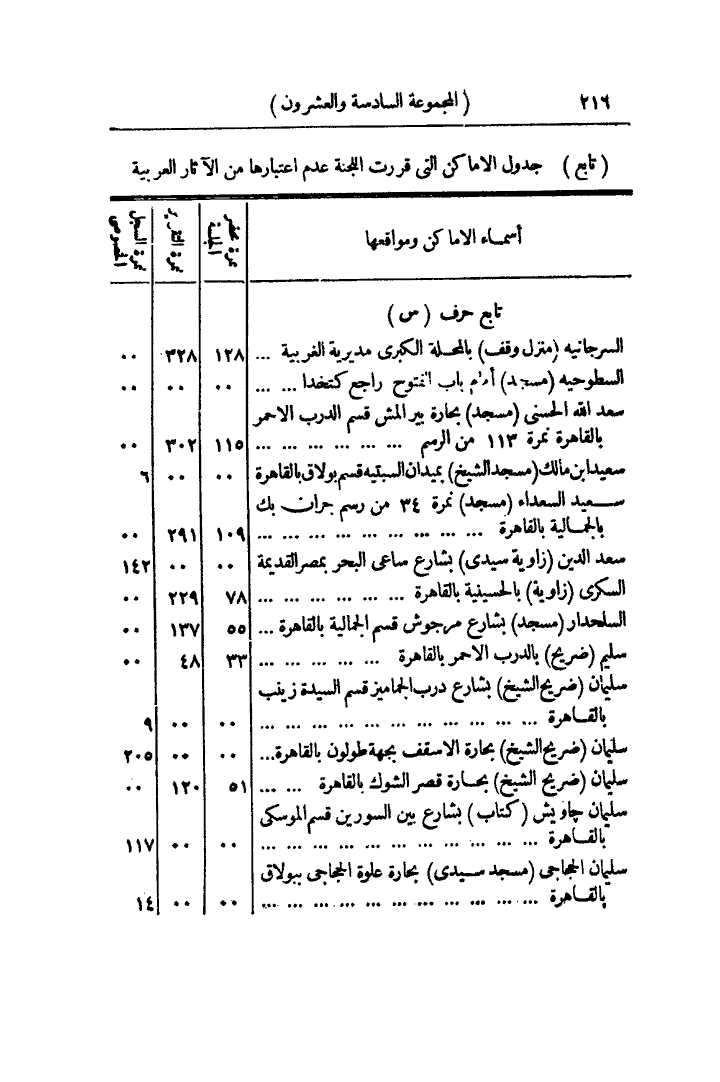 ٢١٦ (المجموعة السادسة والعشرون)
(تابع) جدول الاماكن التى قررت اللجنة عدم اعتبارها من الآثار العربية
أسماء الاماكن ومواقعها نمرة محضر الجلسة نمرة التقرير نمرة السجل الخصوصى
تابع حرف (س)
السرجانيه (منزل وقف) بالمحلة الكبرى مديرية الغربية ... ١٢٨ ٣٢٨ ٠٠
السطوحيه (مسجد) أمام باب الفتوح راجع كتخدا ... ... ٠٠ ٠٠ ٠٠
سعد الله الحسنى (مسجد) بحارة بير المش قسم الدرب الاحمر
بالقاهرة نمرة ١١٣ من الرسم ... ... ... ... ... ... ١١٥ ٣٠٢ ٠٠
سعيد ابن مالك (مسجد الشيخ) بميدان السبتيه قسم بولاق بالقاهرة ٠٠ ٠٠ ٦
سعيد السعداء (مسجد) نمرة ٣٤ من رسم جران بك
بالجمالية بالقاهرة ... ... ... ... ... ... ... ... ... ١٠٩ ٢٩١ ٠٠
سعد الدين (زاوية سيدى) بشارع ساعى البحر بمصر القديمة ٠٠ ٠٠ ١٤٢
السكرى (زاوية) بالحسينية بالقاهرة ... ... ... ... ... ... ٧٨ ٢٢٩ ٠٠
السلحدار (مسجد) بشارع مرجوش قسم الجمالية بالقاهرة ... ٥٥ ١٣٧ ٠٠
سليم (ضريح) بالدرب الاحمر بالقاهرة ... ... ... ... ... ٣٣ ٤٨ ٠٠
سليمان (ضريح الشيخ) بشارع درب الجماميز قسم السيدة زينب
بالقاهرة ... ... ... ... ... ... ... ... ... ... ... ٠٠ ٠٠ ٩
سليمان (ضريح الشيخ) بحارة الاسقف بجهة طولون بالقاهرة... ٠٠ ٠٠ ٢٠٥
سليمان (ضريح الشيخ) بحارة قصر الشوك بالقاهرة ... ... ٥١ ١٢٠ ٠٠
سليمان چاويش (كتاب) بشارع بين السورين قسم الموسكى
بالقاهرة ... ... ... ... ... ... ... ... ... ... ... ٠٠ ٠٠ ١١٧
سليمان الحجاجى (مسجد سيدى) بحارة علوة الحجاجى ببولاق
بالقاهرة ... ... ... ... ... ... ... ... ... ... ... ٠٠ ٠٠ ١٤